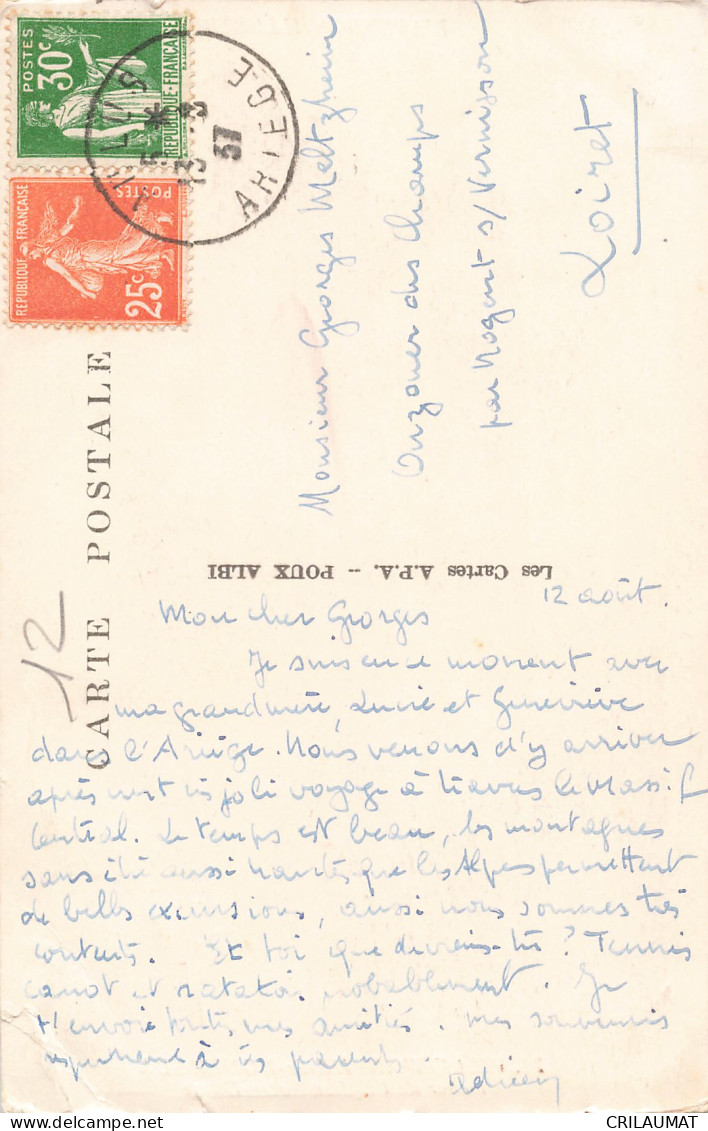 POSTES
30c
REPUBLIQUE-FRANCAISE
REPUBLIQUE FRANCAISE
POSTES
25c
ARIEGE
37
CARTE POSTALE
12
Monsieur Georges Meltzheim
Ouzouer des Champs
par Nogent s/ Vernisson
Loiret
Les Cartes A.P.A. -- POUX ALBI
12 août.
Mon cher Georges
Je suis en ce moment avec
ma grandmère, Lucie et Geneviève
dans l'Ariège. Nous venons d'y arriver
après un très joli voyage à travers le Massif
Central. Le temps est beau, les montagnes
sans être aussi hautes que les Alpes permettent
de belles excursions, aussi nous sommes très
contents. Et toi que deviens-tu? Tennis
canot et probablement. Je
t'envoie toutes mes amitiés. Mes souvenirs
à tes parents.
CRILAUMAT